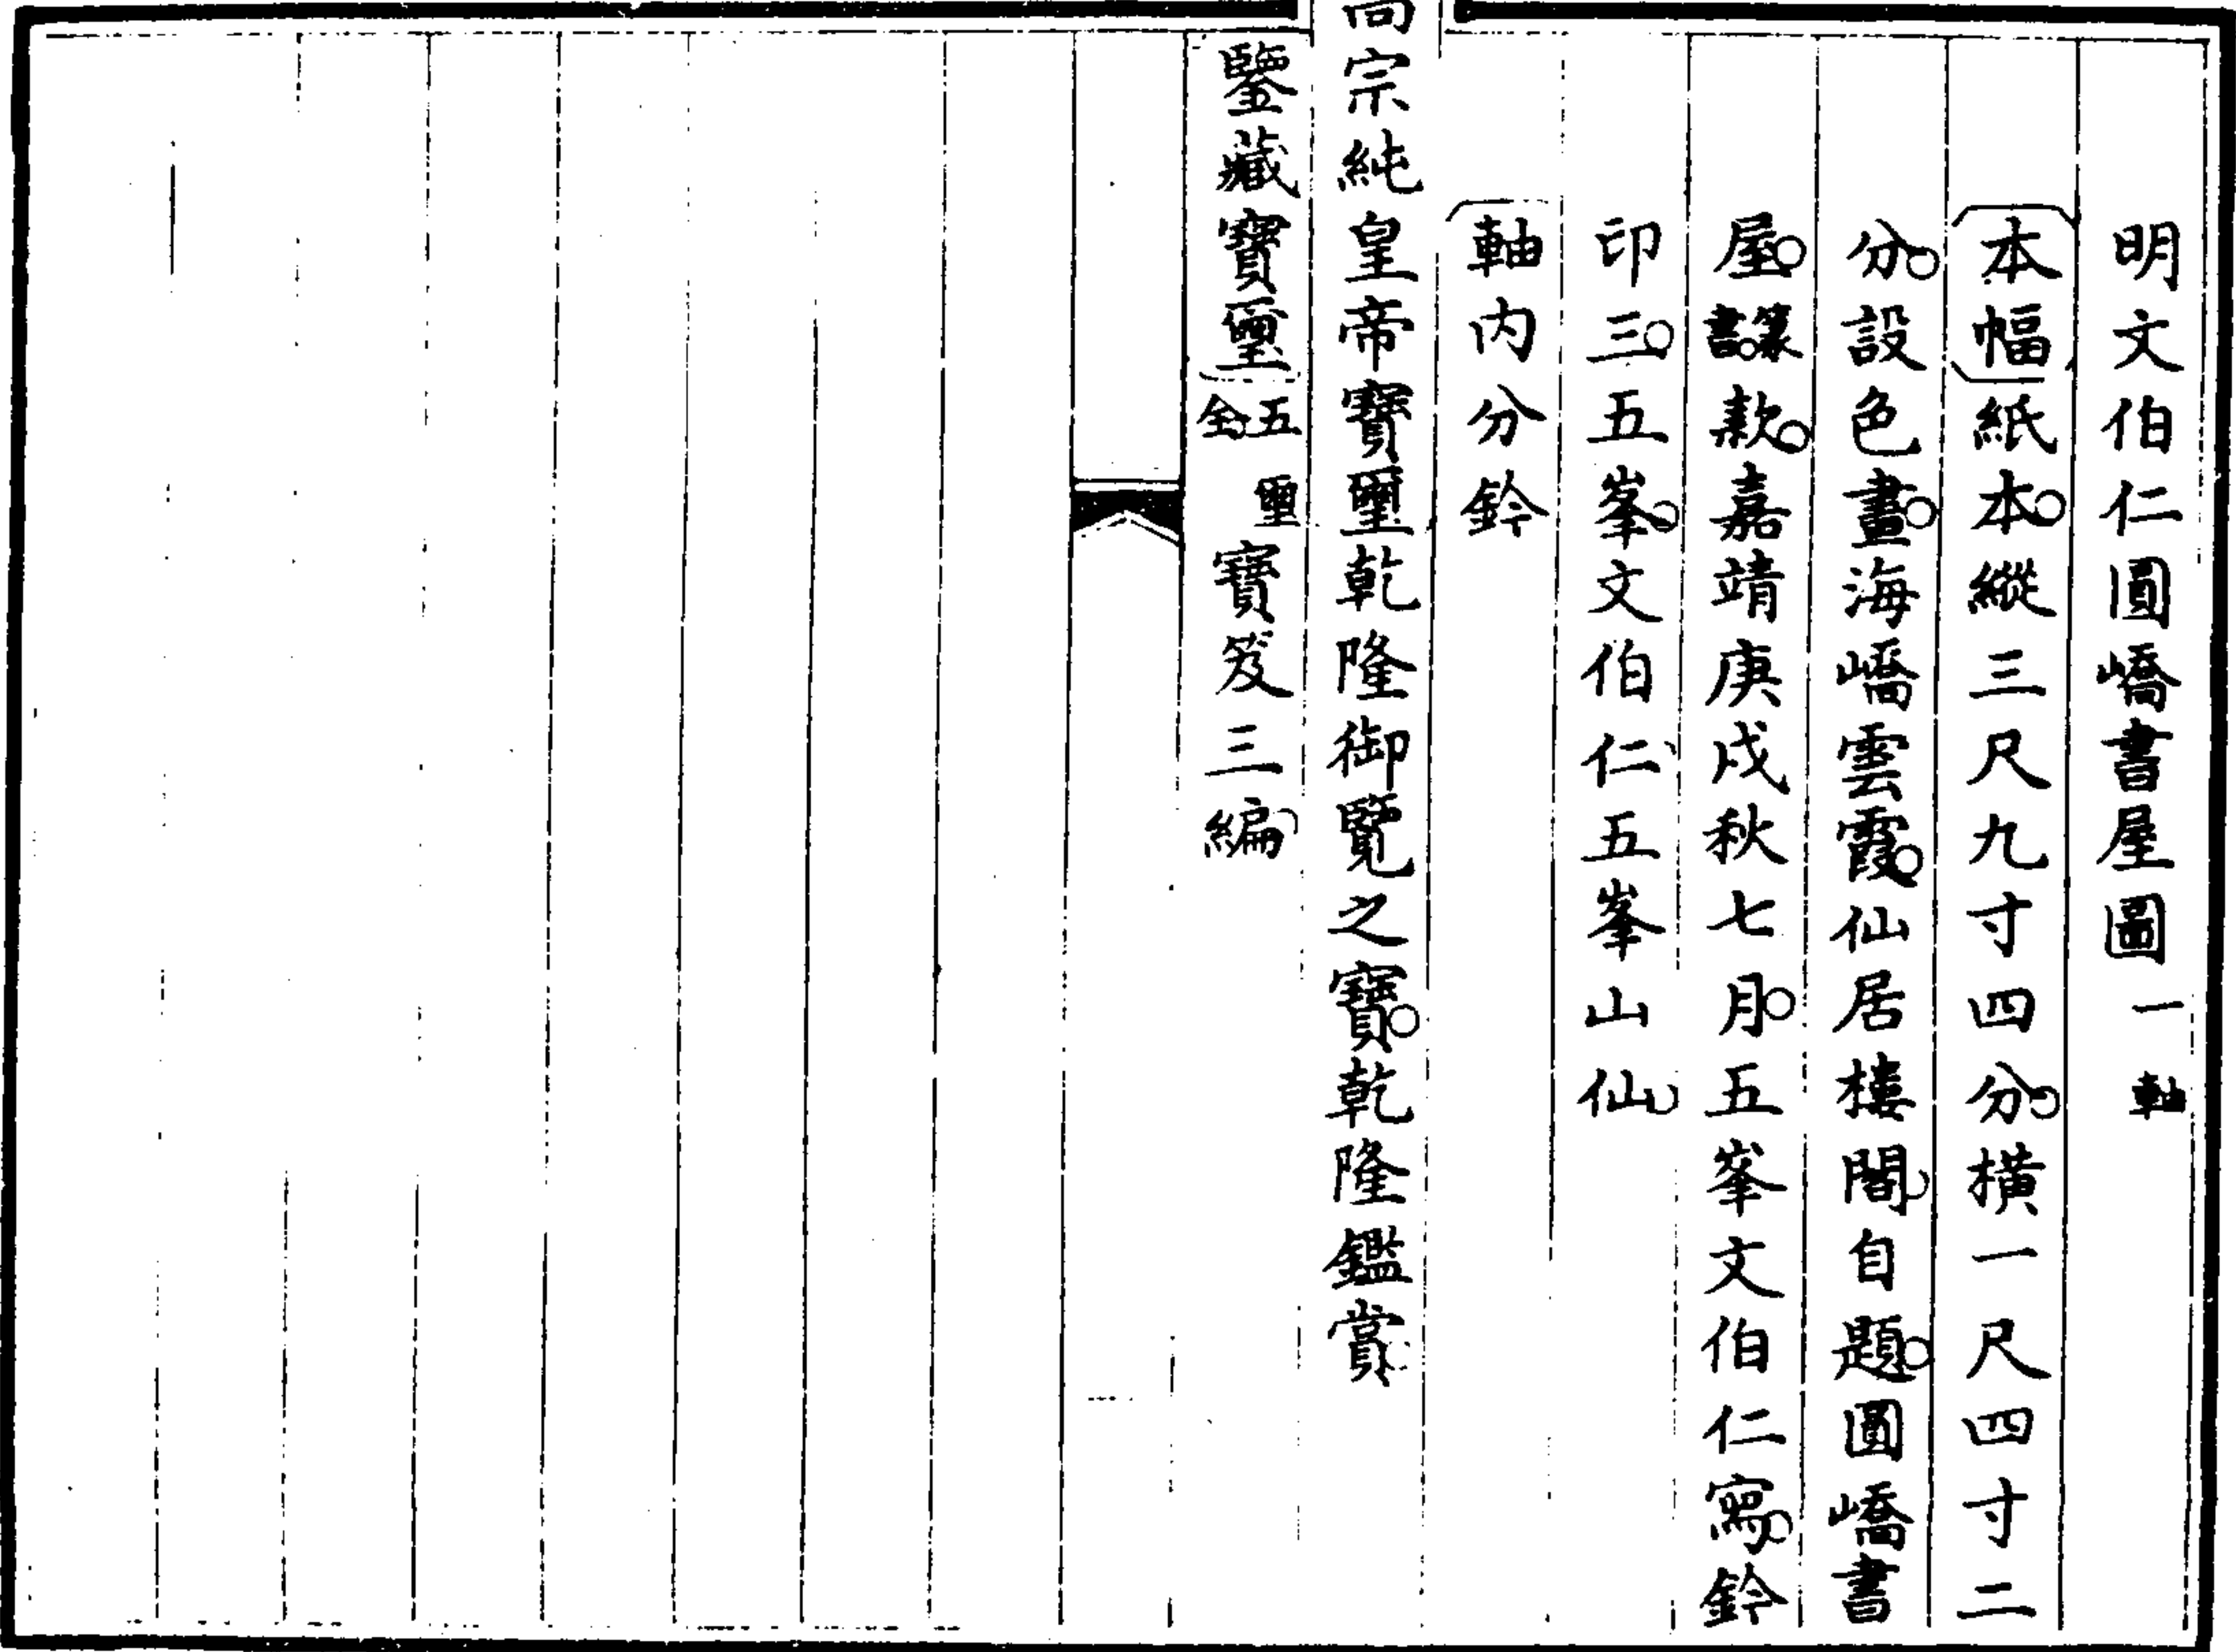 明文伯仁圓嶠書屋圖一軸
本幅紙本縱三尺九寸四分橫一尺四寸二
分設色畫海嶠雲霞仙居樓閣自題圓嶠書
屋篆書款嘉靖庚戌秋七月五峯文伯仁寫鈐
印三五峯文伯仁五峯山仙
軸內分鈐
高宗純皇帝寶璽乾隆御覽之寶乾隆鑑賞
鑒藏寶璽五璽全寶笈三編